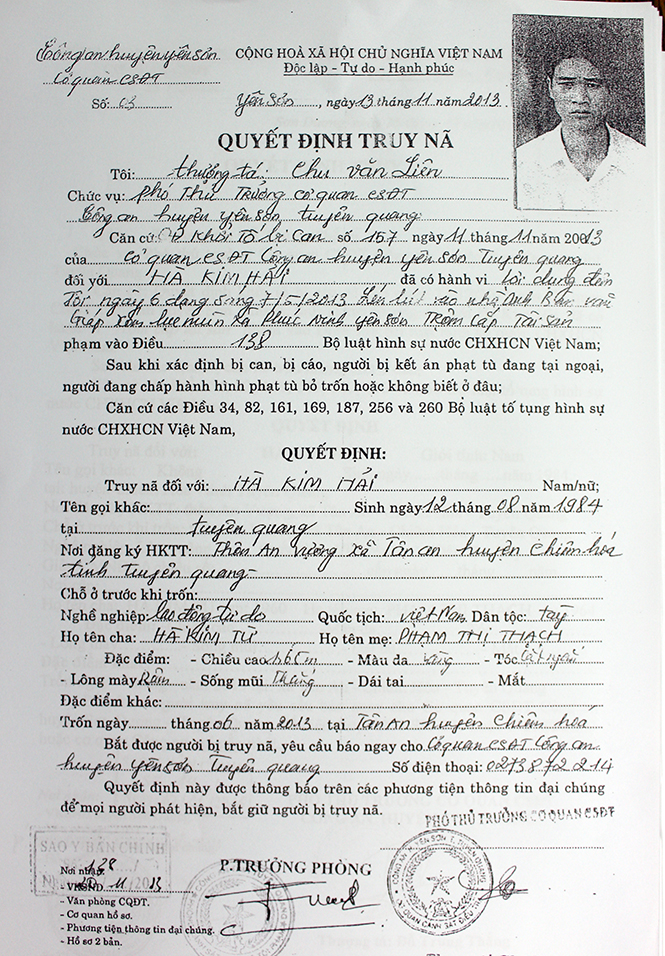 Công an huyện yên sơn
Cơ quan CSĐT
Số: 03
CỘNG HOÀ XÃ HỘI CHỦ NGHĨA VIỆT NAM
Độc lập - Tự do - Hạnh phúc
yên sơn, ngày 13 tháng 11 năm 2013
QUYẾT ĐỊNH TRUY NÃ
Tôi: thượng tá: Chu văn Liên
Chức vụ: phó Thủ Trưởng cơ quan CSĐT
Công an huyện yên sơn, tuyên quang
Căn cứ: QĐ Khởi Tố bị Can số 157 ngày 11 tháng 11 năm 20013
của cơ quan CSĐT Công an huyện yên sơn Tuyên quang
đối với HÀ KIM HẢI đã có hành vi lợi dụng đêm
Tối ngày 6 dạng sang 7/5/2013 Lẻn lút vào nhà Anh Bàn văn
Giáp xóm lục mùn xã Phúc Ninh yên sơn Trộm Cắp Tài sản
phạm vào Điều 138 Bộ luật hình sự nước CHXHCN Việt Nam;
Sau khi xác định bị can, bị cáo, người bị kết án phạt tù đang tại ngoại,
người đang chấp hành hình phạt tù bỏ trốn hoặc không biết ở đâu;
Căn cứ các Điều 34, 82, 161, 169, 187, 256 và 260 Bộ luật tố tụng hình sự
nước CHXHCN Việt Nam,
QUYẾT ĐỊNH:
Truy nã đối với: HÀ KIM HẢI Nam/nữ;
Tên gọi khác: Sinh ngày 12 tháng 08 năm 1984
tại tuyên quang
Nơi đăng ký HKTT: Thôn An Vượng xã Tân an huyện chiêm hóa
tỉnh tuyên quang
Chỗ ở trước khi trốn:
Nghề nghiệp: lao động tự do Quốc tịch: việt Nam Dân tộc: tày
Họ tên cha: HÀ KIM TỪ Họ tên mẹ: PHẠM THỊ THẠCH
Đặc điểm: - Chiều cao 1m65m - Màu da vàng - Tóc cắt ngắn
- Lông mày Rậm - Sống mũi Thẳng - Dái tai - Mắt
Đặc điểm khác:
Trốn ngày tháng 06 năm 2013 tại TÂN AN huyện chiêm hoá
Bắt được người bị truy nã, yêu cầu báo ngay cho cơ quan CSĐT Công an
huyện yên sơn Tuyên quang Số điện thoại: 0273872214
Quyết định này được thông báo trên các phương tiện thông tin đại chúng
để mọi người phát hiện, bắt giữ người bị truy nã.
PHÓ THỦ TRƯỞNG CƠ QUAN CSĐT
SAO Y BẢN CHÍNH
P.TRƯỞNG PHÒNG
Nơi nhận:
- VKSND
- Văn phòng CQĐT.
- Cơ quan hồ sơ.
- Phương tiện thông tin đại chúng.
- Hồ sơ 2 bản.